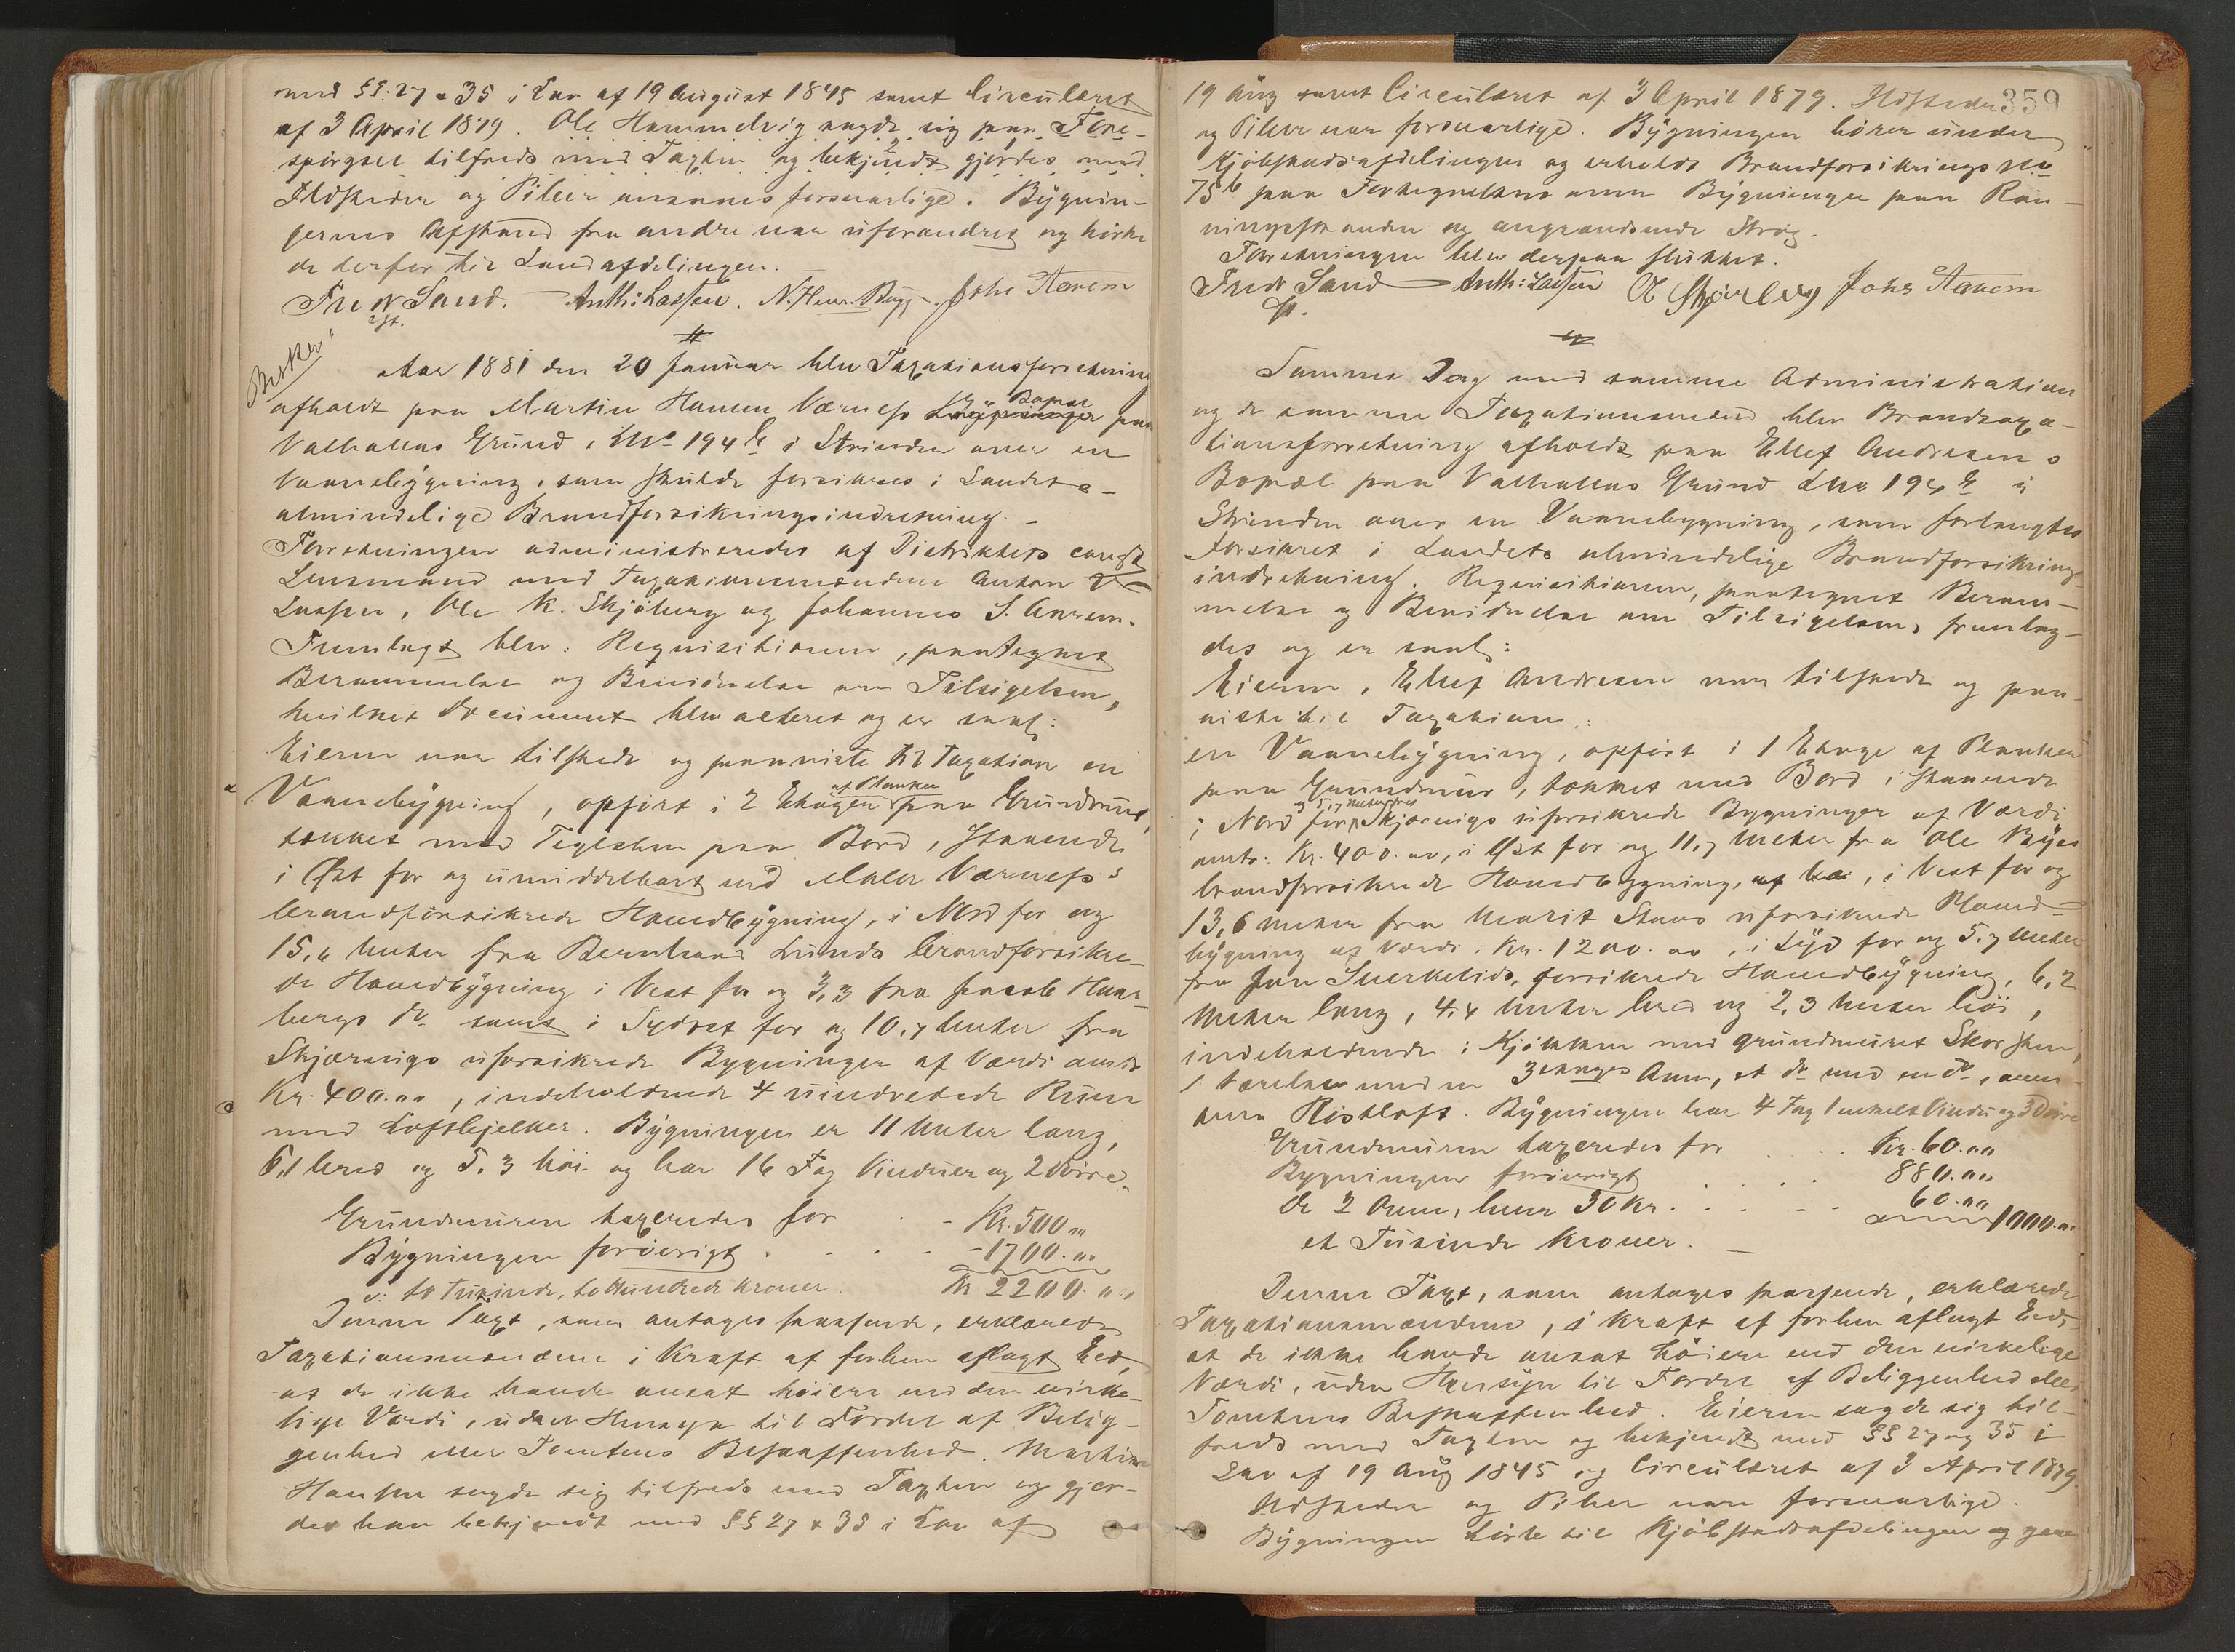 med §§. 27 & 35 i Lov af 19 August 1845 samt Circulæret
af 3 April 1879. Ole Hammelvig sagde sig paa Fore-
spørgsel tilfreds med Taxten og bekjendt gjordes med
Ildsteder og Piber ansaaes forsvarlige. Bygnin-
gernes Afstand fra andre var uforandret og hørte
de derfor til Landafdelingen.
Fredr Sand. Anth: Lassen. N. Henr. Bugge. Johs Aarem
cst.
Aar 1881 den 20 Januar blev Taxationsforretning
afholdt paa Martin Hansen Værness Bopæl paa
Valhallas Grund, LNo 194 b i Strinden over en
Vaanebygning, som skulde forsikres i Landets
almindelige Brandforsikringsindretning.
Forretningen administreredes af Distriktets const.
Lensmand med Taxationsmændene Anton
Lassen, Ole K. Skjöberg og Johannes S. Aarem.
Fremlagt blev: Requisitionen, paategnet
Berammelse og Bevidnelse om Tilsigelsen,
hvilket Document blev acteret og er saal:
Eieren var tilstede og paaviste til Taxation en
Vaanebygning, opført i 2 Etager af Planker paa Grundmur,
tækket med Teglsten paa Bord, staaende
i Øst for og umiddelbart ved Maler Værness's
brandforsikrede Hovedbygning, i Nord for og
15,4 Meter fra Bernhard Lunds brandforsikre-
de Hovedbygning i Vest for og 3,3 fra Jacob Haar-
bergs do samt i Sydvest for og 10,7 Meter fra
Skjærvigs uforsikrede Bygninger af Værdi omtr.
Kr. 400.00, indeholdende 4 uindredede Rum
med Loftbjelker. Bygningen er 11 Meter lang,
6,1 bred og 5.3 höi og har 16 Fag Vinduer og 2 Dörre.
Grundmuren taxeredes for Kr. 500 „
Bygningen forövrigt - 1700. „
e: to Tusinde, to Hundrede Kroner. Kr 2200. „
Denne Taxt, som antages passende, erklærede
Taxationsmændene i Kraft af forhen aflagt Ed,
at de ikke havde ansat höiere end den virke-
lige Værdi, uden Hensyn til Fordel af Belig-
genhed eller Tomtens Beskaffenhed. Martin
Hansen sagde sig tilfreds med Taxten og gjor-
des han bekjendt med §§ 27 & 35 i Lov af
19 Aug samt Circulæret af 3 April 1879. Ildsteder 359
og Piber var forsvarlige. Bygningen hører under
Kjöbstadsafdelingen og erholdt Brandforsikrings No
75 b paa Fortegnelsen over Bygninger paa Rön-
ningsstranden og angrændsende Strög.
Forretningen blev derpaa sluttet.
Fredr Sand Anth: Lassen O K Skjöberg Johs Aarem
cst.
Samme Dag med samme Administration
og de samme Taxationsmænd blev Brandtaxa-
tionsforretning afholdt paa Ellef Andresens
Bopæl paa Valhallas Grund LNo 194 b i
Strinden over en Vaanebygning, som forlangtes
forsikret i Landets almindelige Brandforsikrings-
indretning. Requisitionen, paategnet Beram-
melse og Bevidnelse om Tilsigelsen, fremlag-
des og er saal:
Eieren, Ellef Andresen var tilstede og paa-
viste til Taxation:
en Vaanebygning, opfört i 1 Etage af Planker
paa Grundmur, tækket med Bord, staaende
i Nord for og 5,7 Meter fra Skjærvigs uforsikrede Bygninger af Værdi
omtr: Kr. 400.00, i Øst for og 11,7 Meter fra Ole Byes
brandforsikrede Hovedbygning, i Vest for og
13,6 Meter fra Marit Stavs uforsikrede Hoved-
bygning af Værdi: Kr. 1200.00, i Syd for og 5.7 Meter
fra Jon Sverketids forsikrede Hovedbygning, 6,2
Meter lang, 4,4 Meter bred og 2,3 Meter höi,
indeholdende: Kjökken med grundmuret Skorsten,
1 Værelse med en 3 etages Ovn, et do med en do, oven-
paa Röstloft. Bygningen har 4 Fag enkelt Vindu og 3 Dörre
Grundmuren taxeredes for Kr. 60.00
Bygningen forövrigt 880.00
de 2 Ovne, hver 30 Kr. 60.00 1000.00
et Tusinde Kroner.
Denne Taxt, som antages passende, erklærede
Taxationsmændene, i Kraft af forhen aflagt Eed,
at de ikke havde ansat höiere end den virkelige
Værdi, uden Hensyn til Fordel af Beliggenhed eller
Tomtens Beskaffenhed. Eieren sagde sig til-
freds med Taxten og bekjendt med §§ 27 og 35 i
Lov af 19 Aug 1845 og Circulæret af 3 April 1879.
Ildsteder og Piber vare forsvarlige.
Bygningen hörte til Kjöbstadsafdelingen og gaves